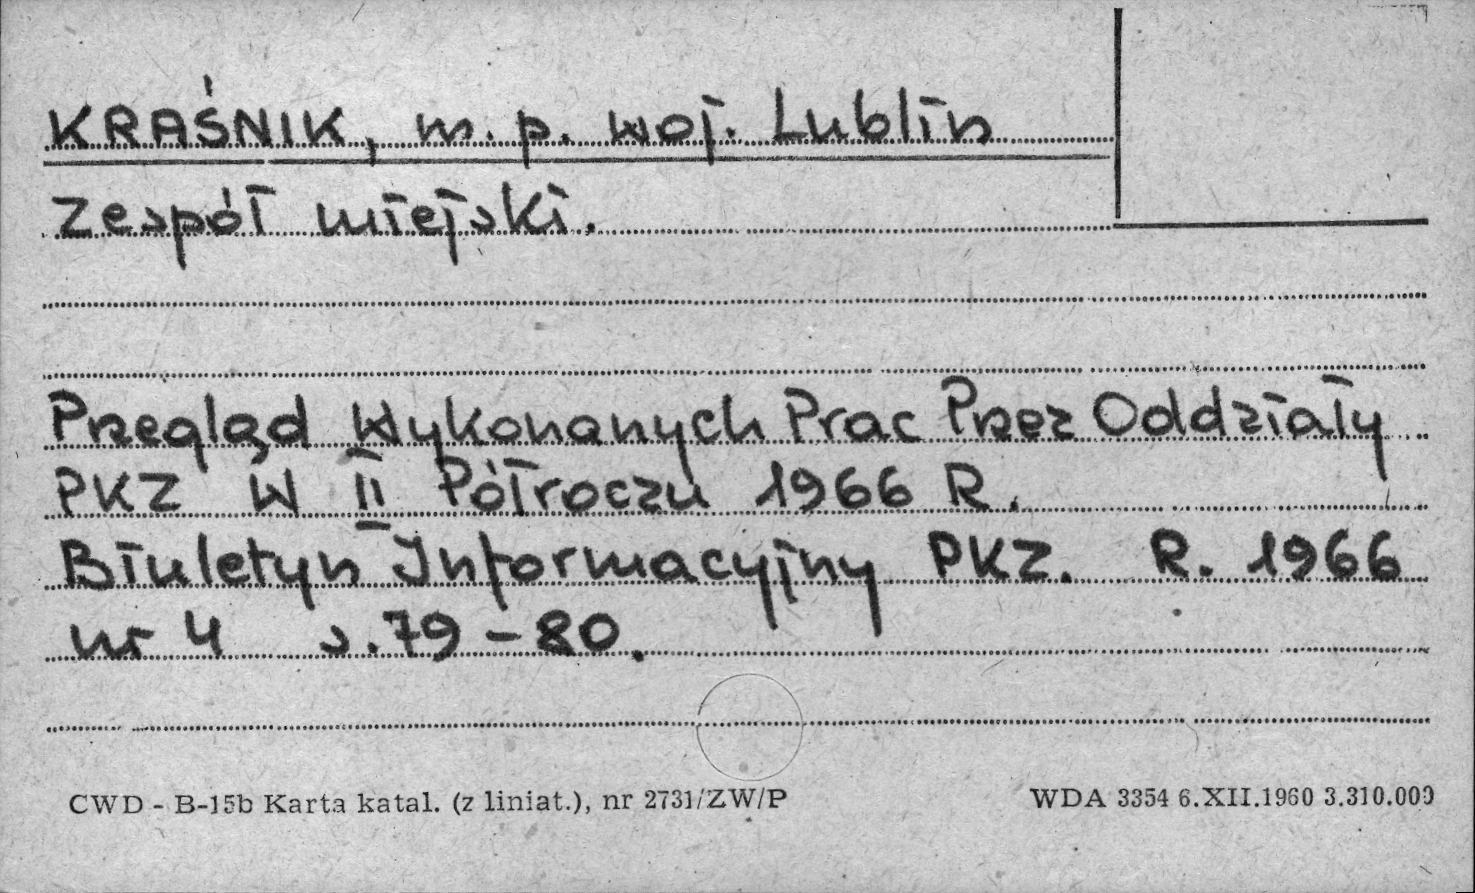 KRAŚNIK, m. p. woj. Lublin
Zespół miejski.
Przegląd Wykonanych Prac Przez Oddziały
PKZ W II Półroczu 1966 R.
Biuletyn Informacyjny PKZ. R. 1966
nr 4 s. 79-80.
CWD - B-15b Karta katal. (z liniat.), nr 2731/ZW/P WDA 3354 6.XII.1960 3.310.000